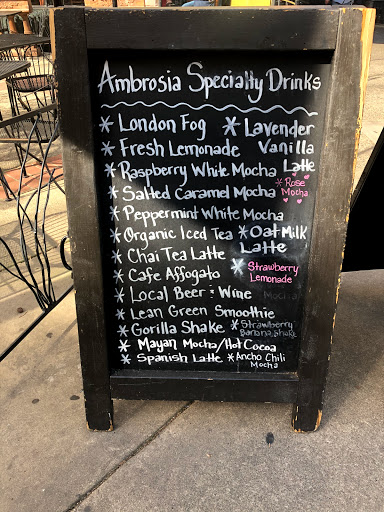 Ambrosia Specialty Drinks
* London Fog * Lavender
Vanilla
Latte
* Fresh Lemonade
* Raspberry White Mocha
* Salted Caramel Mocha
* Rose
Mocha
* Peppermint White Mocha
* Organic Iced Tea * Oat Milk
Latte
* Chai Tea Latte
* Cafe Affogato
* Strawberry
Lemonade
* Local Beer : Wine
* Lean Green Smoothie
* Gorilla Shake * Strawberry
Banana Shake
* Mayan Mocha/Hot Cocoa
* Spanish Latte * Ancho Chili
Mocha